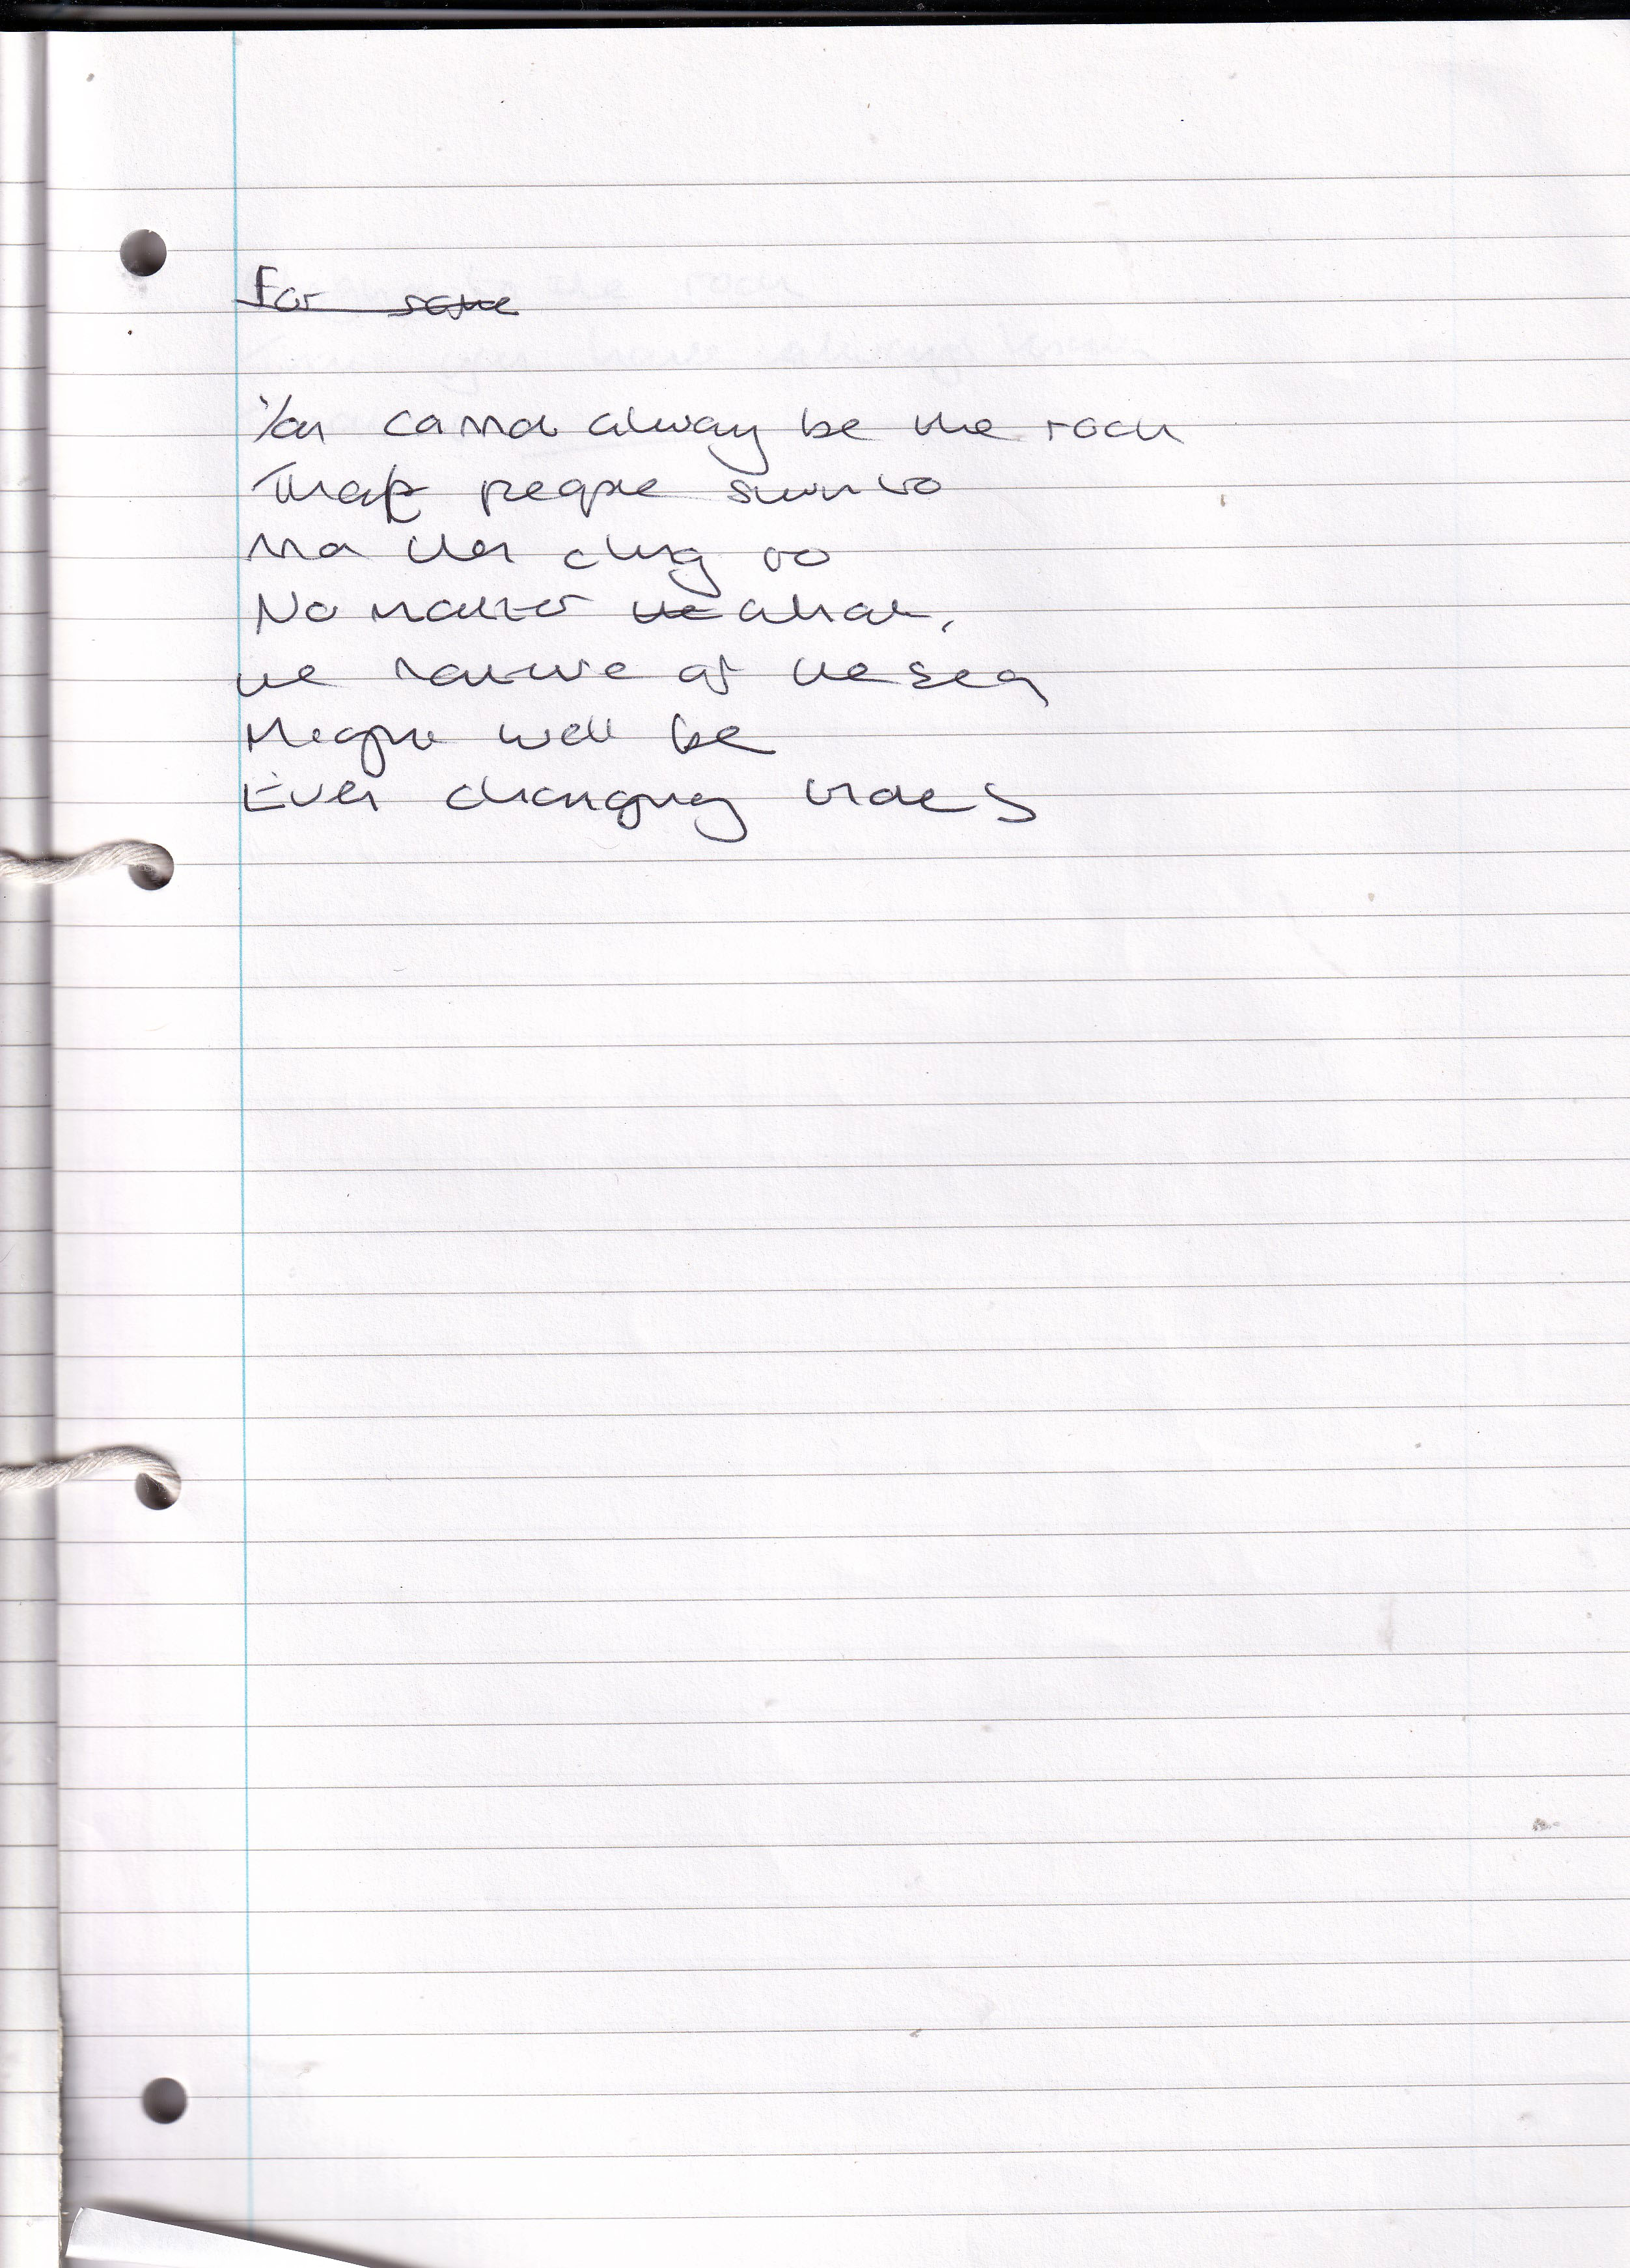 For some
You cannot always be the rock
That people swim to
no cling to
No matter the what,
the nature of the sea
People will be
Ever changing tides